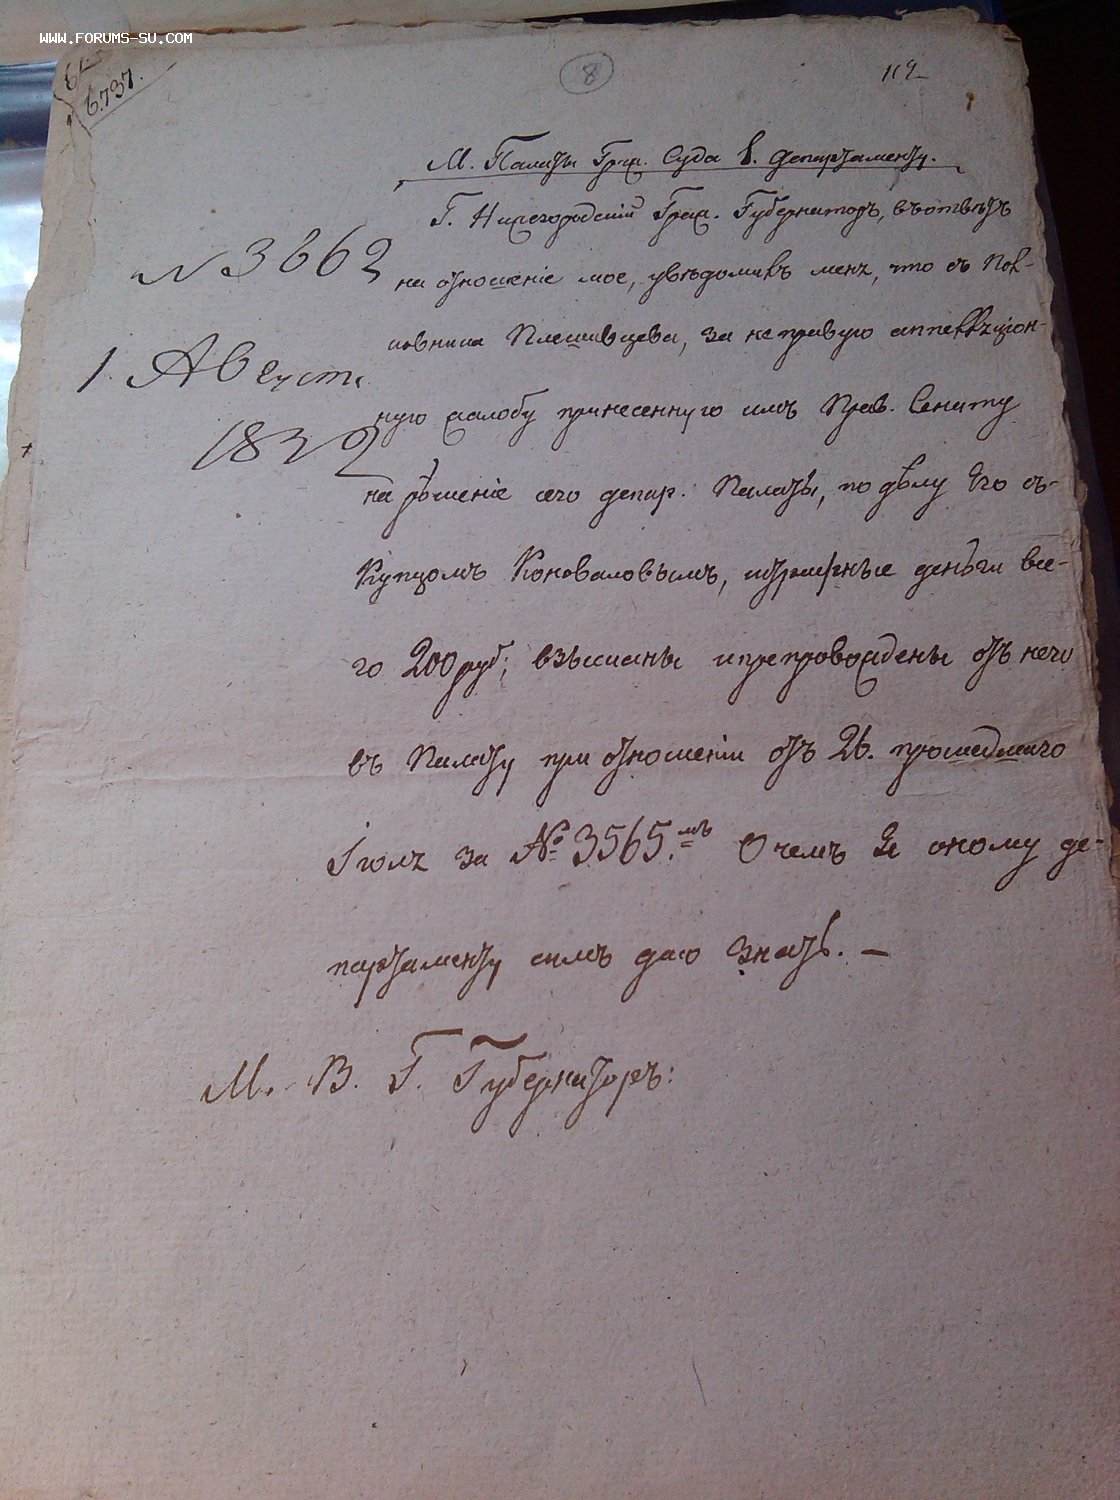 WWW.FORUMS-SU.COM
6.737.
8
119
М. Палаты Граж. Суда 1. Департаменту.
Г. Нижегородскій Граж. Губернаторъ, въ ответъ
№ 3662
на отношеніе мое, уведомивъ меня, что съ Пол-
ковника Плешивцева, за неправую аппелляцион-
1. Август
ную жалобу принесенную имъ Прав. Сенату
1832
на решеніе сего депар. Палаты, по делу Его съ-
Купцомъ Коноваловымъ, штрафные деньги все-
го 200 руб; взысканы и препровождены отъ него
въ Палату при отношеніи отъ 26. прошедшаго
Іюля за № 3565.мъ О чемъ Я оному де-
партаменту симъ даю знать. —
М. В. Г. Губернаторъ: